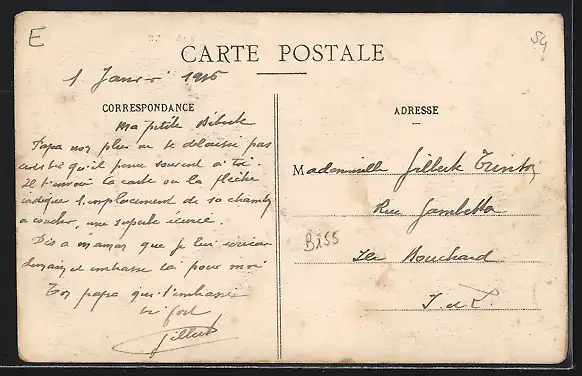 E
54
CARTE POSTALE
1 Janvier 1916
CORRESPONDANCE
Ma petite
Papa non plus ne te délaisse pas
crois bien qu'il pense souvent à toi.
Il t'envoie la carte ou la flèche
indique l'emplacement de sa chambre
a coucher, une superbe écurie.
Dis a maman que je lui écrirai
demain et embrasse la pour moi
Ton papa qui t'embrasse
bien fort
Gilbert
ADRESSE
Mademoiselle Gilberte
Rue Gambetta
Ile Bouchard
I et L
B155